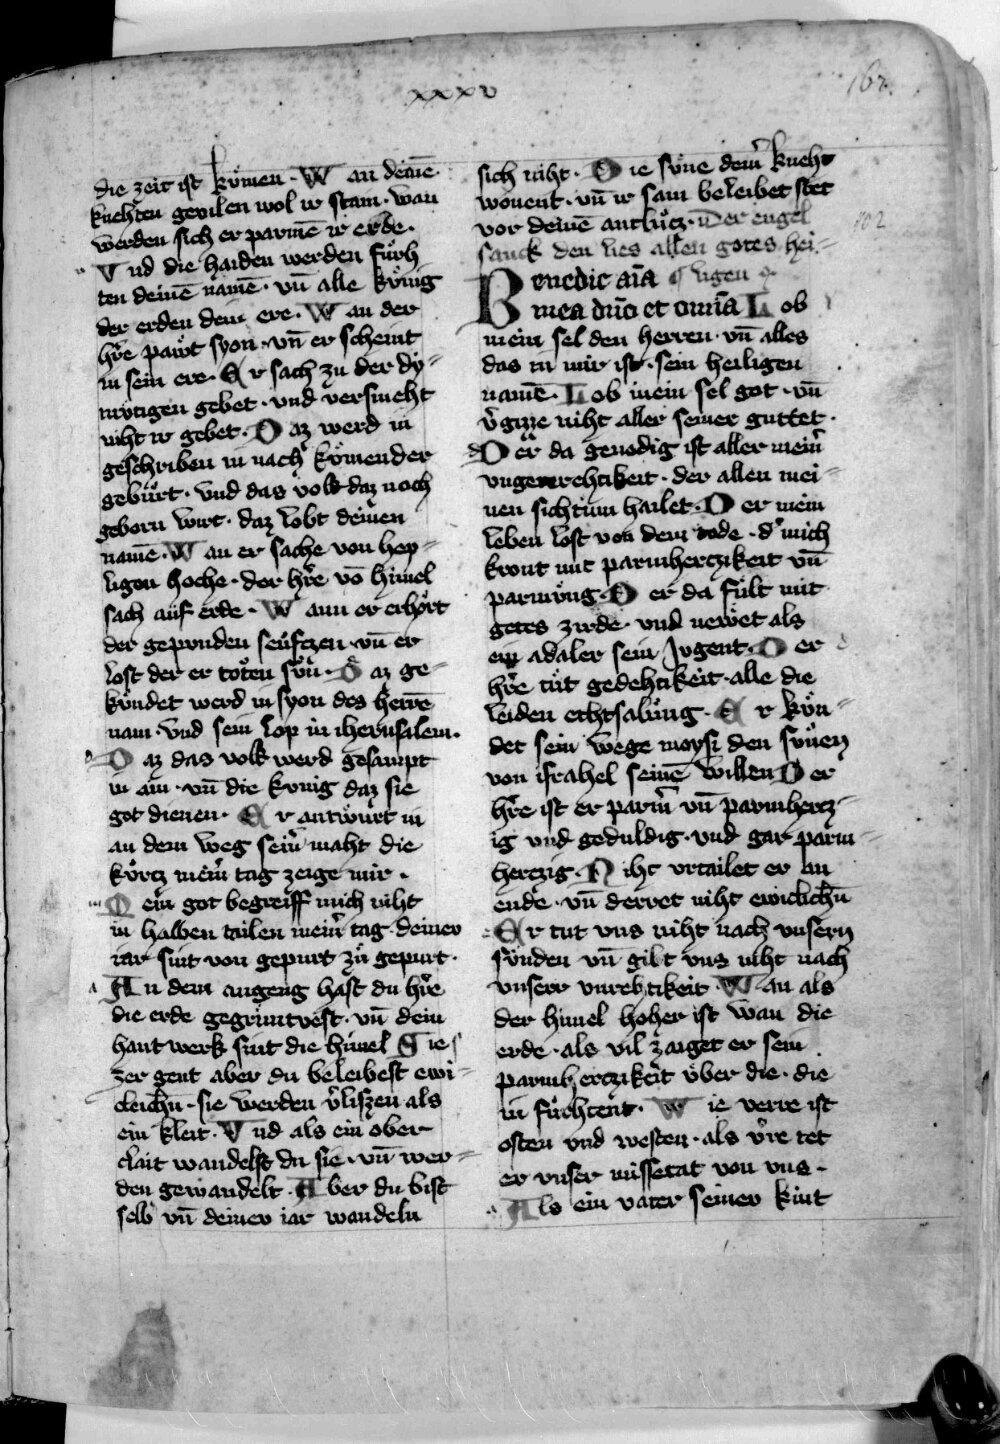 xxxv
162.
die zeit ist kömen · W an deinē
knehten geuilen wol ir stain · wan
werden sich er parmē ir erde ·
V nd die haiden werden fürh
ten deinē namē · vn̄ alle könig
der erden dein ere · W an der
hr̄e pawt syon · vn̄ er scheint
in sein ere · E r sach zu der dy-
mütigen gebet · vnd versmeht
niht ir gebet · D az werd in
geschriben in nach kömender
gebürt · vnd das volk daz noch
geborn wirt · daz lobt deinen
namē · W an er sache von hey-
ligen hoche · der hr̄e vō himel
sach auf erde · W ann er erhört
der gepunden seüfczen · vn̄ er
lost der er töten sün · D az ge-
kündet werd in syon des herrē
nam · vnd sein lop in iherusalem ·
D az das volk werd gesampt
in ain · vn̄ die kunig daz sie
got dienen · E r antwürt in
an dem weg sein̄ maht die
kürcz mein̄ tag zeige mir ·
M ein got begreiff mich niht
in halben tailen mein̄ tag · deinev
iar sint von gepurt zu gepurt ·
A n dem angeng hast du hr̄e
die erde gegruntvest · vn̄ dein
hant werk sint die himel S ie
zer gent aber du beleibest ewi-
cleichn̄ · sie werden v̄liszen als
ein kleit · V nd als ein ober
clait wandelst du sie · vn̄ wer-
den gewandelt · A ber du bist
selb vn̄ deinev iar wandeln
sich niht · D ie süne dein̄ kneht
wonent · vn̄ ir sam beleibet stet
vor deinē antlücz · Der engel
sanck den lies allen gotes hei-
B enedic aīa ¶ ligen
mea dn̄o et omīa L ob
mein sel den herren · vn̄ alles
das in mir ist · sein heiligen
namē · L ob mein sel got · vn̄
v̄gizze niht aller seiner guttet ·
D er da genodig ist aller mein̄
vngerehtikeit · der allen mei-
nen sichtum hailet · D er mein
leben lost von dem tode · d' mich
kront mit parmherczikeit vn̄
parmüng · D er da fült mit
gutes zirde · vnd newet als
ein adaler sein Jvgent · D er
hr̄e tüt gedehtikeit · alle die
leiden echtsalüng · E r kün-
det sein wege moysi den sünen
von israhel seinē willen D er
hr̄e ist er parm̄ vn̄ parmhercz-
ig vnd geduldig · vnd gar parm-
herczig · N iht vrtailet er an
ende · vn̄ derret niht ewiclichn̄
E r tut vns niht nach vnsern
sünden vn̄ gilt vns niht nach
vnserr vnrehtikeit · W an als
der himel hoher ist wan die
erde · als vil zaiget er sein
parmherczikeit über die · die
in fürhten · W ie verre ist
osten vnd westen · als v̄re tet
er vnser missetat von vns ·
A ls ein vater seinev kint
102